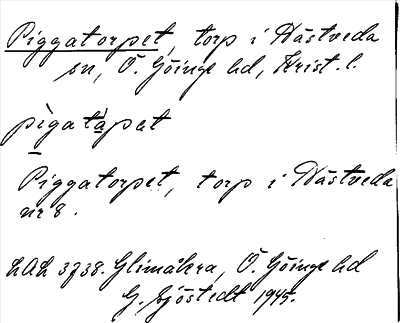 Piggatorpet, torp i Hästveda
sn, Ö. Göinge hd, Krist. l.
pìgatàpat
Piggatorpet, torp i Hästveda
nr 8.
LAL 3738. Glimåkra, Ö. Göinge hd
G. Sjöstedt 1945.